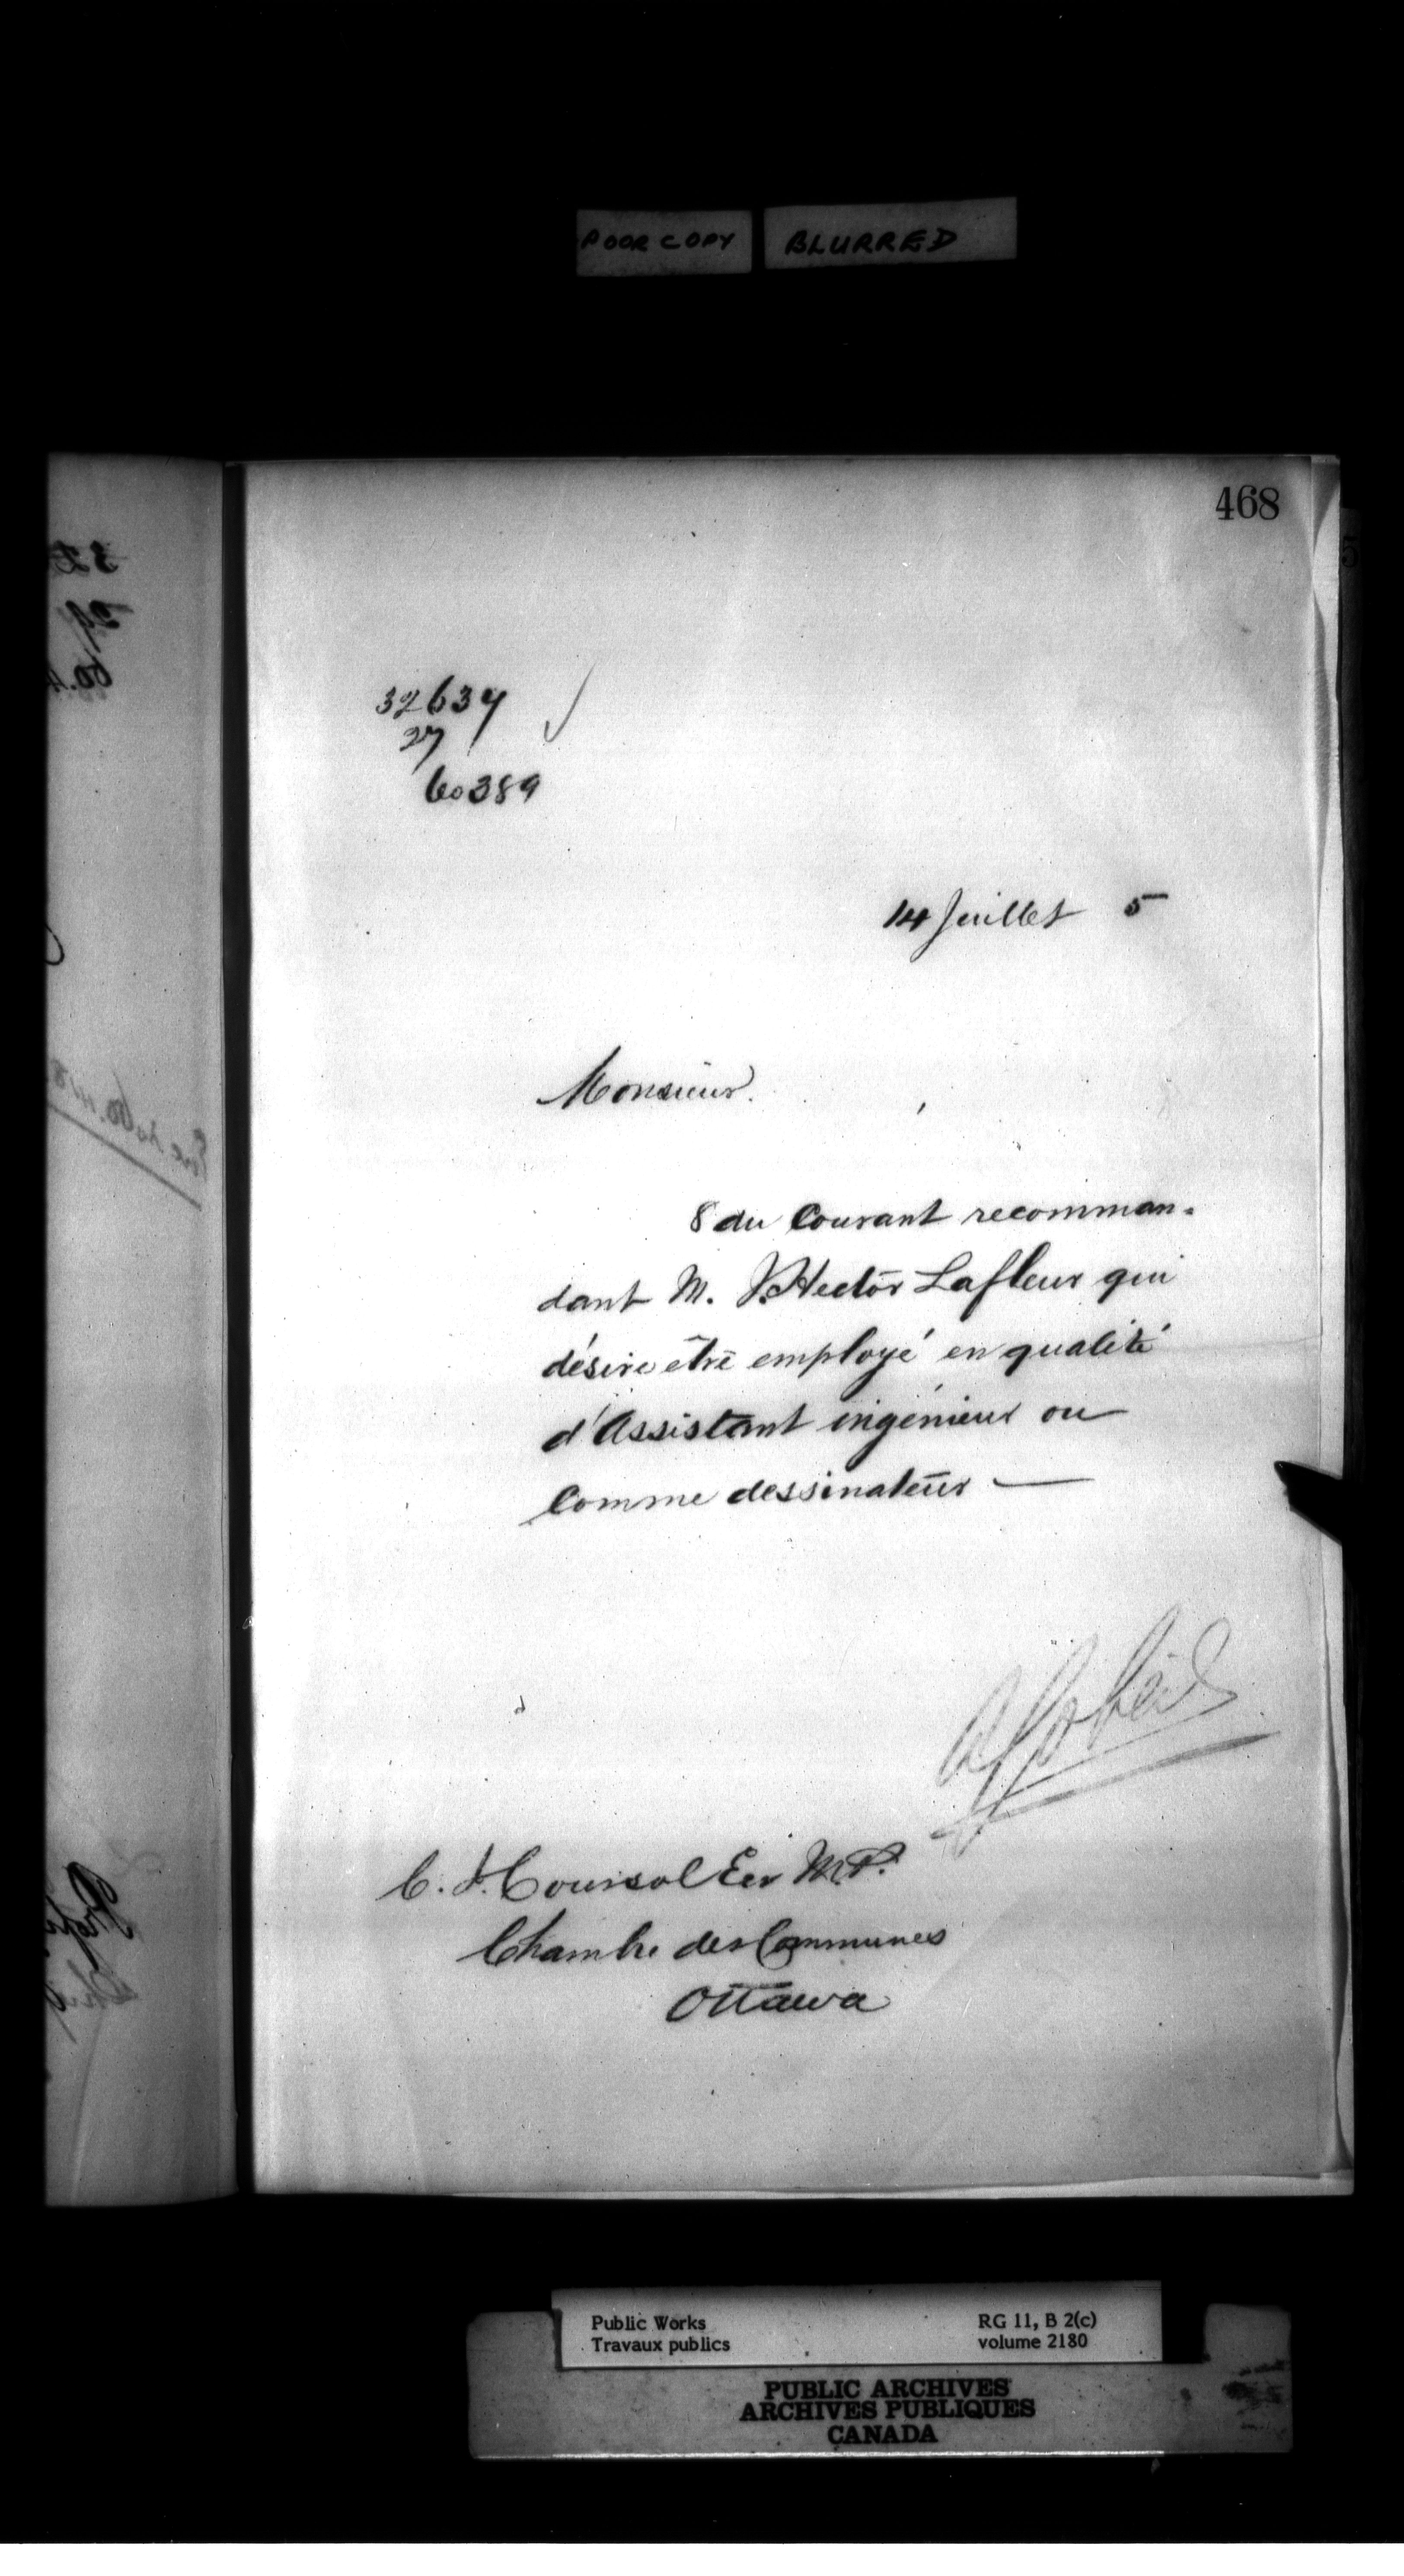 POOR COPY BLURRED
468
32634
27
60389
14 Juillet 5
Monsieur.
8 du Courant recomman-
dant M. J. Hector Lafleur qui
désire être employé en qualité
d'Assistant ingénieur ou
Comme dessinateur —
C. J. Coursol Ecr M.P.
Chambre des Communes
Ottawa
Public Works RG 11, B 2(c)
Travaux publics volume 2180
PUBLIC ARCHIVES
ARCHIVES PUBLIQUES
CANADA